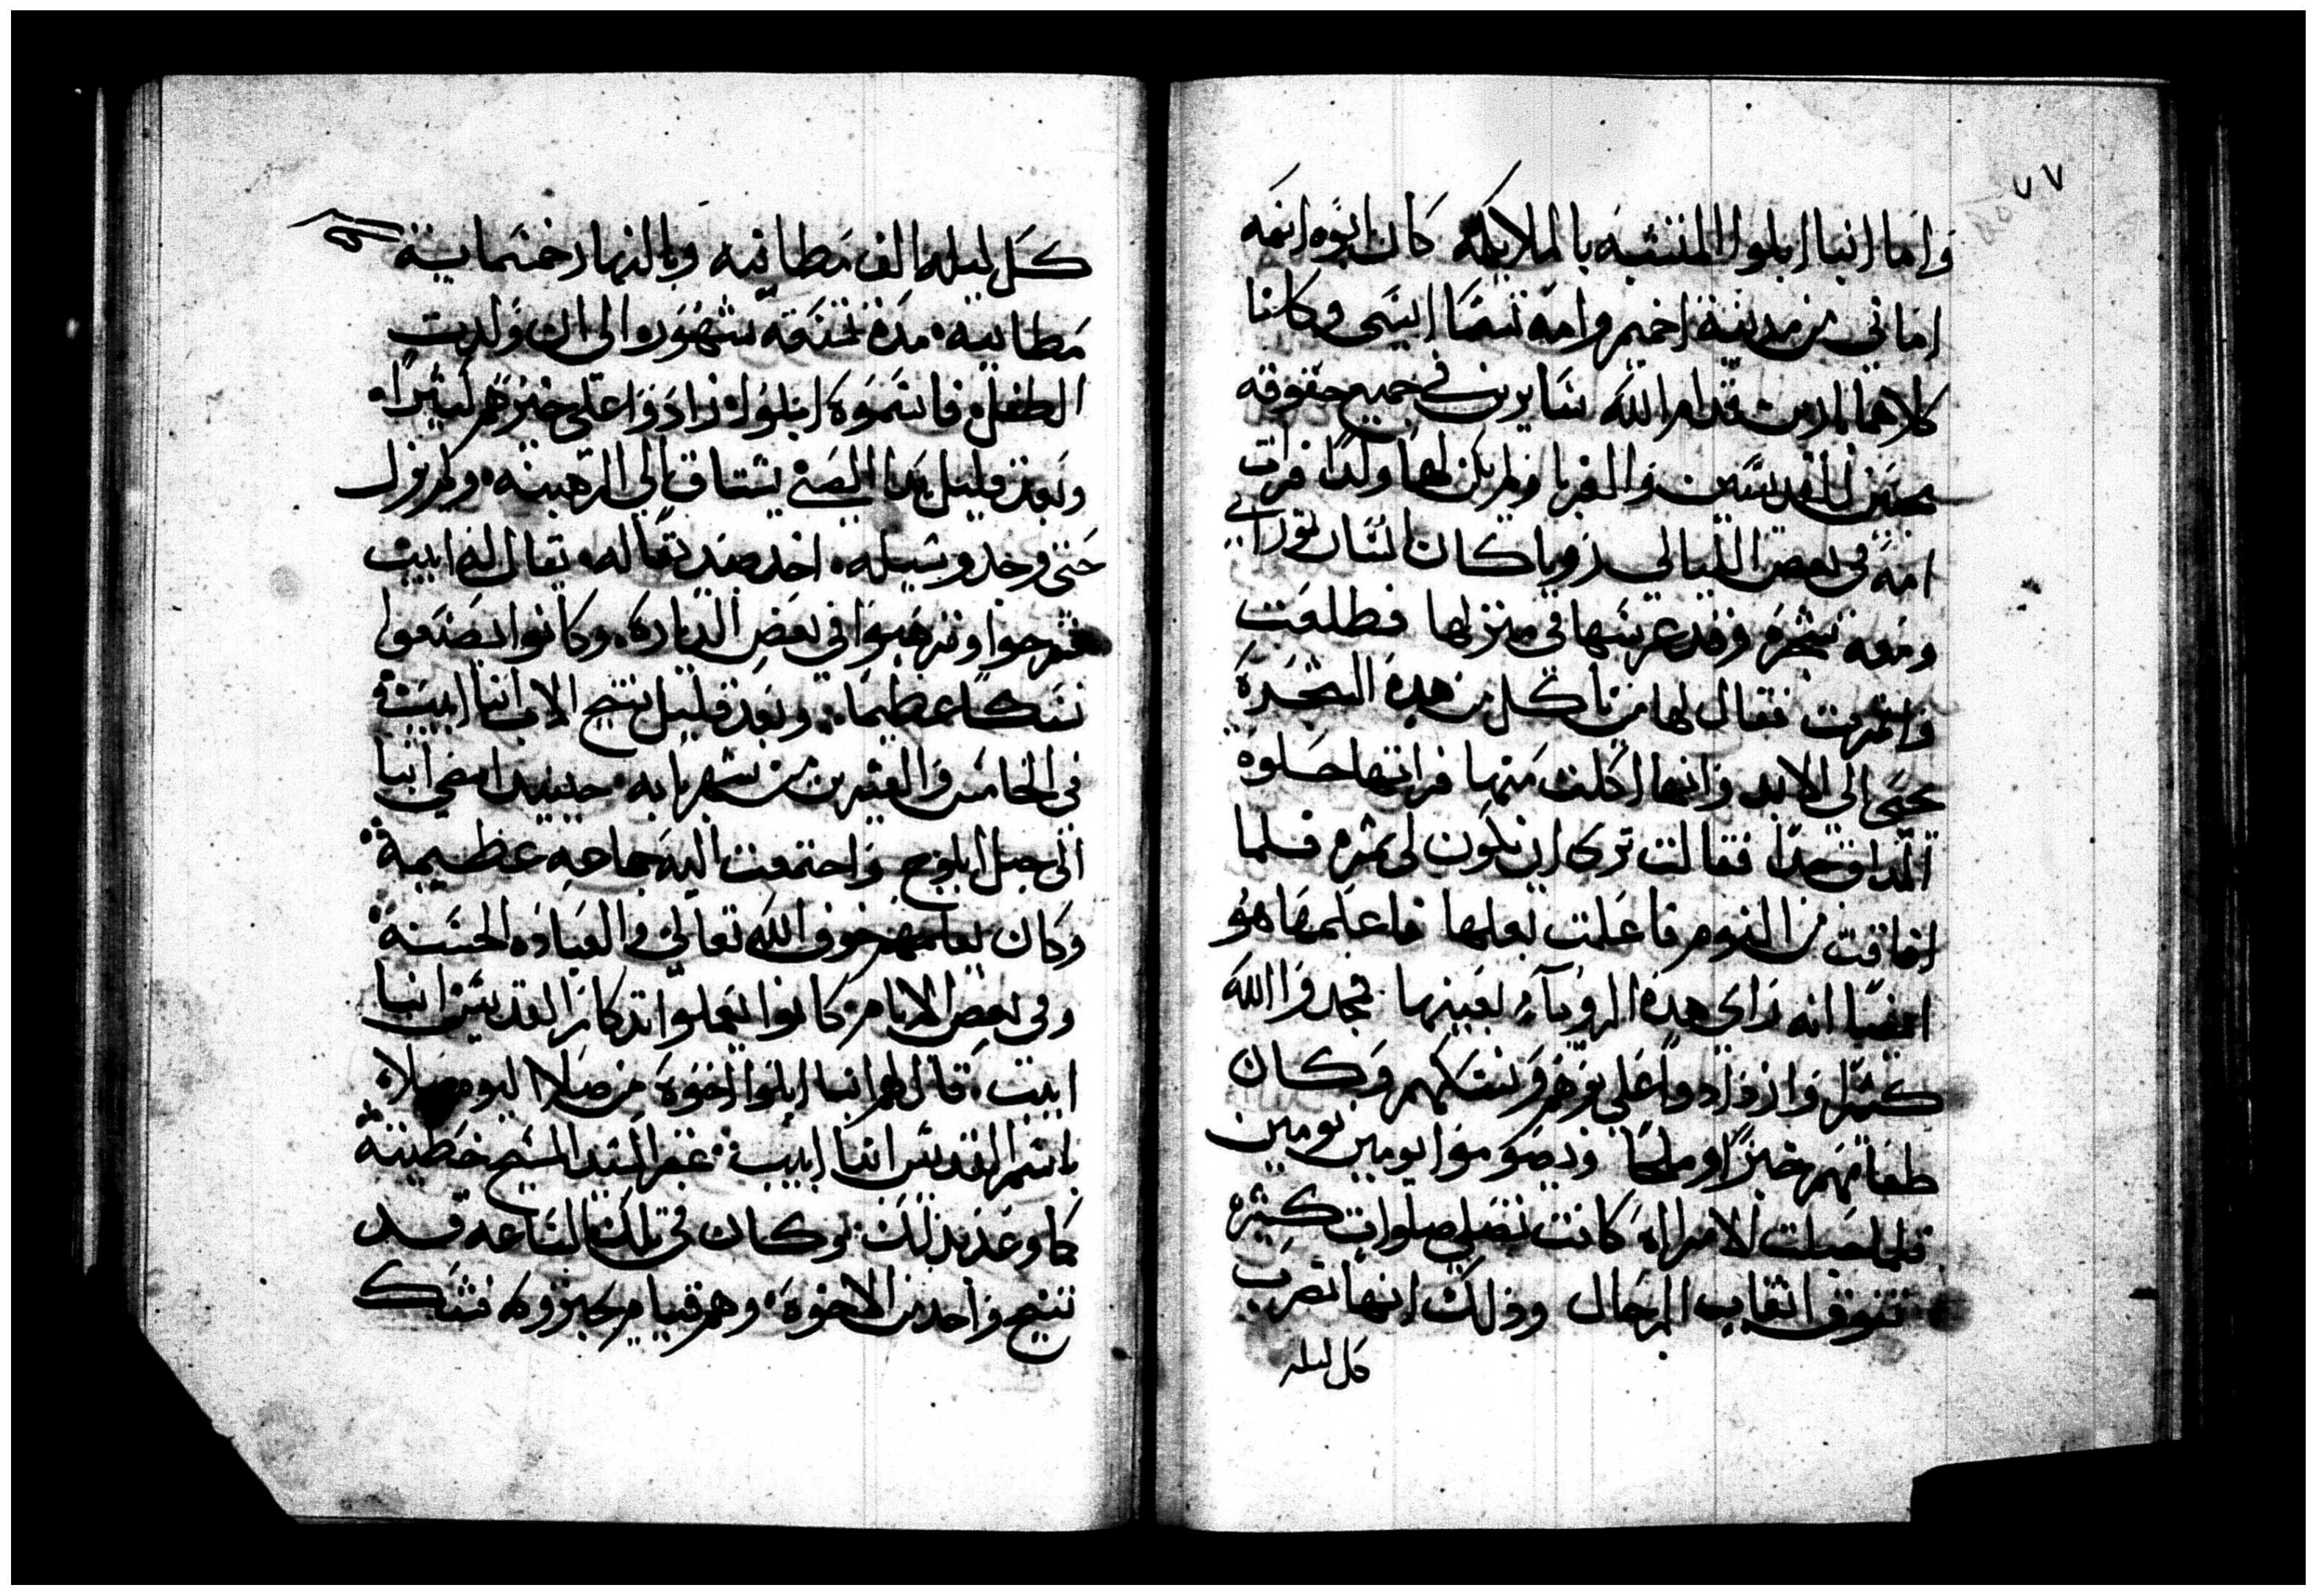 ٧٧
واما انبا ابلوا المتشبه بالملايكه كان ابوه اسمه
اماني من مدينة اخميم وامه تسما ايسي وكانا
كلاهما بارين قدام الله سايرين في جميع حقوقه
محبين للقديسين والغربا ولم يكن لهما ولدا فرات
امه في بعض الليالي رويا كان انسان نوراني
ومعه شجره وقد غرسها في منزلها فطلعت
واثمرت فقال لها من ياكل من هده الشجرة
يحيى الى الابد وانها اكلت منها فراتها حلوة
المداق جدا فقالت ترى ان يكون لي ثمره فلما
افاقت من النوم فاعلمت بعلها فاعلمها هو
ايضا انه راى هده الرويا بعينها فمجدوا الله
كثيرا وازدادوا على برهم ونسكهم وكان
طعامهم خبزا وملحا ويصوموا يومين يومين
فلما حبلت الامراه كانت تصلي صلوات كثيره
تفوق اتعاب الرجال وذلك انها تضرب
كل ليله
كل ليله الف مطانيه وبالنهار خمسماية
مطانيه مدة تسعة شهور والى ان ولدت
الطفل فاسموه ابلوا وزادوا على خيرهم كثيرا
وبعد قليل بدا الصبي يشتاق الى الرهبنه ولم يزل
حتى وجد وسيله اخد صديقا له يقال له ابيب
فخرجوا وترهبوا في بعض الدياره وكانوا يصنعوا
نسكا عظيما وبعد قليل تنيح الاب انبا ابيب
في الخامس والعشرين من شهر بابه حينيد امضى انبا
الى جبل ابلوج واجتمعت اليه جماعه عظيمة
وكان يعلمهم خوف الله تعالى والعباده الحسنة
وفي بعض الايام كانوا يعملوا تدكار القديس انبا
ابيب قال لهم انبا ابلوا اخوة من صلا اليوم صلاة
باسم القديس انبا ابيب غفر السيد المسيح خطيته
كما وعد بدلك وكان في تلك الساعه قد
تنيح واحد من الاخوة وهم قيام يجنزوه فشك